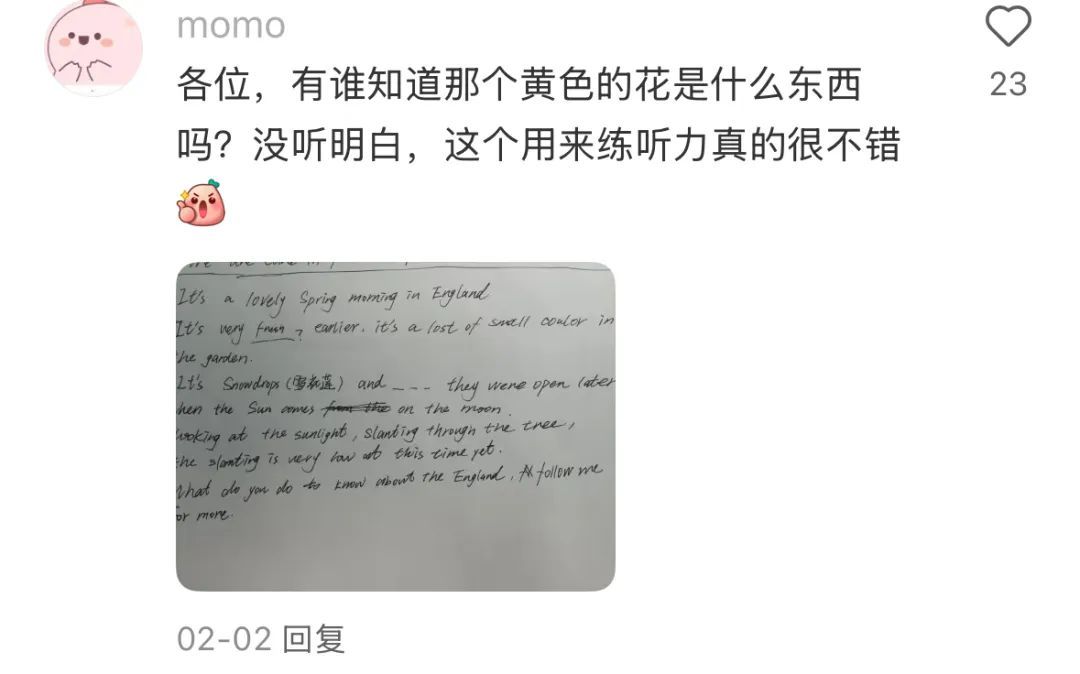 momo
各位，有谁知道那个黄色的花是什么东西
吗？没听明白，这个用来练听力真的很不错
23
It's a lovely Spring morning in England
It's very ? earlier. it's a lost of small coulor in
the garden.
It's Snowdrops (雪花莲) and _ _ _ they were open later
hen the Sun comes on the moon.
looking at the sunlight, slanting through the tree,
the slanting is very low at this time yet.
What do you do to know about the England, follow me
or more.
02-02 回复